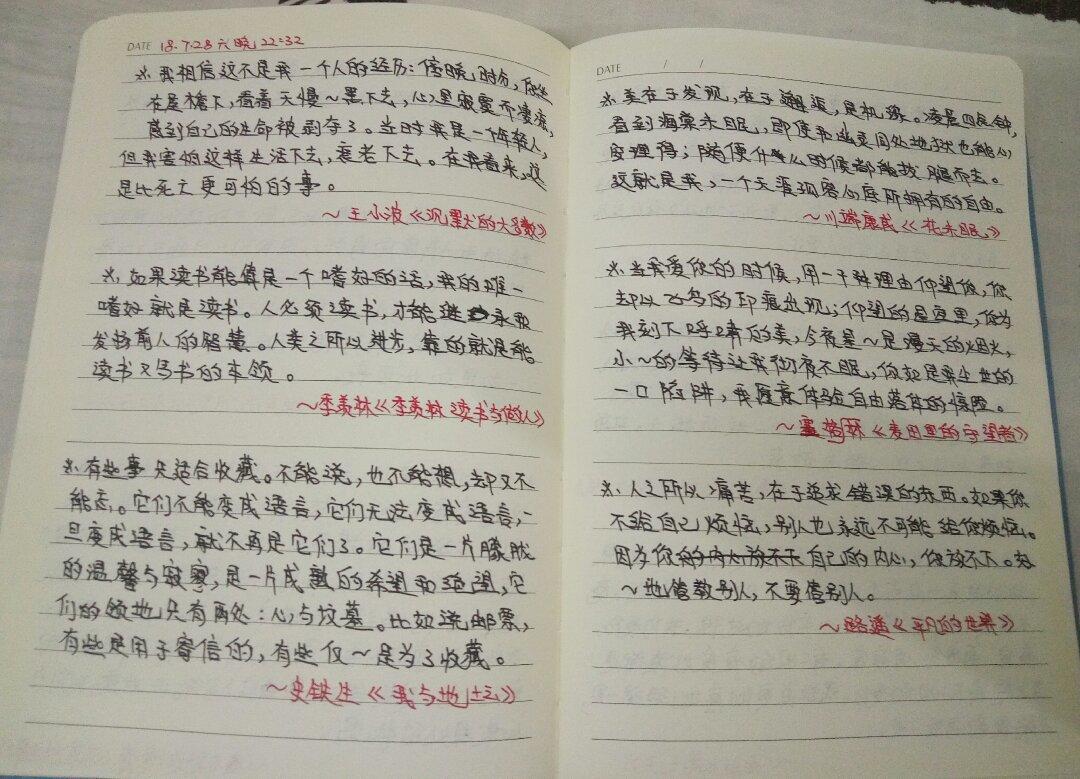 DATE 18.7.28 六晚 22:32
※. 我相信这不是我一个人的经历: 傍晚时分, 你坐
在屋檐下, 看着天慢~黑下去, 心里寂寞而凄凉,
感到自己的生命被剥夺了。当时我是一个年轻人,
但我害怕这样生活下去, 衰老下去。在我看来, 这
是比死亡更可怕的事。
~王小波《沉默的大多数》
※. 如果读书能算是一个嗜好的话, 我的唯一
嗜好就是读书。人必须读书, 才能继承和
发扬前人的智慧。人类之所以进步, 靠的就是能
读书又写书的本领。
~季羡林《季羡林读书与做人》
※. 有些事只适合收藏。不能说, 也不能想, 却又不
能忘。它们不能变成语言, 它们无法变成语言, 一
旦变成语言, 就不再是它们了。它们是一片朦胧
的温馨与寂寥, 是一片成熟的希望和绝望, 它
们的领地只有两处: 心与坟墓。比如说邮票,
有些是用于寄信的, 有些仅~是为了收藏。
~史铁生《我与地坛》
DATE / /
※. 美在于发现, 在于邂逅, 是机缘。凌晨四点钟,
看到海棠未眠, 即使我幽灵间处地狱也能心
安理得; 随便什么时候都能拔腿而去。
这就是我, 一个天涯孤客心底所拥有的自由。
~川端康成《花未眠》
※. 当我爱你的时候, 用一千种理由仰望你, 你
却以飞鸟的印痕出现; 仰望的星空里, 你为
我刻下呼啸的美, 今夜星~是漫天的烟火,
小~的等待让我们夜不眠, 你如是我生世的
一口陷阱, 我愿意体验自由落体的惊险。
~塞格林《麦田里的守望者》
※. 人之所以痛苦, 在于追求错误的东西。如果你
不给自己烦恼, 别人也永远不可能给你烦恼。
因为你自己的内心, 你放不下。好
~地管教别人, 不要管别人。
~路遥《平凡的世界》